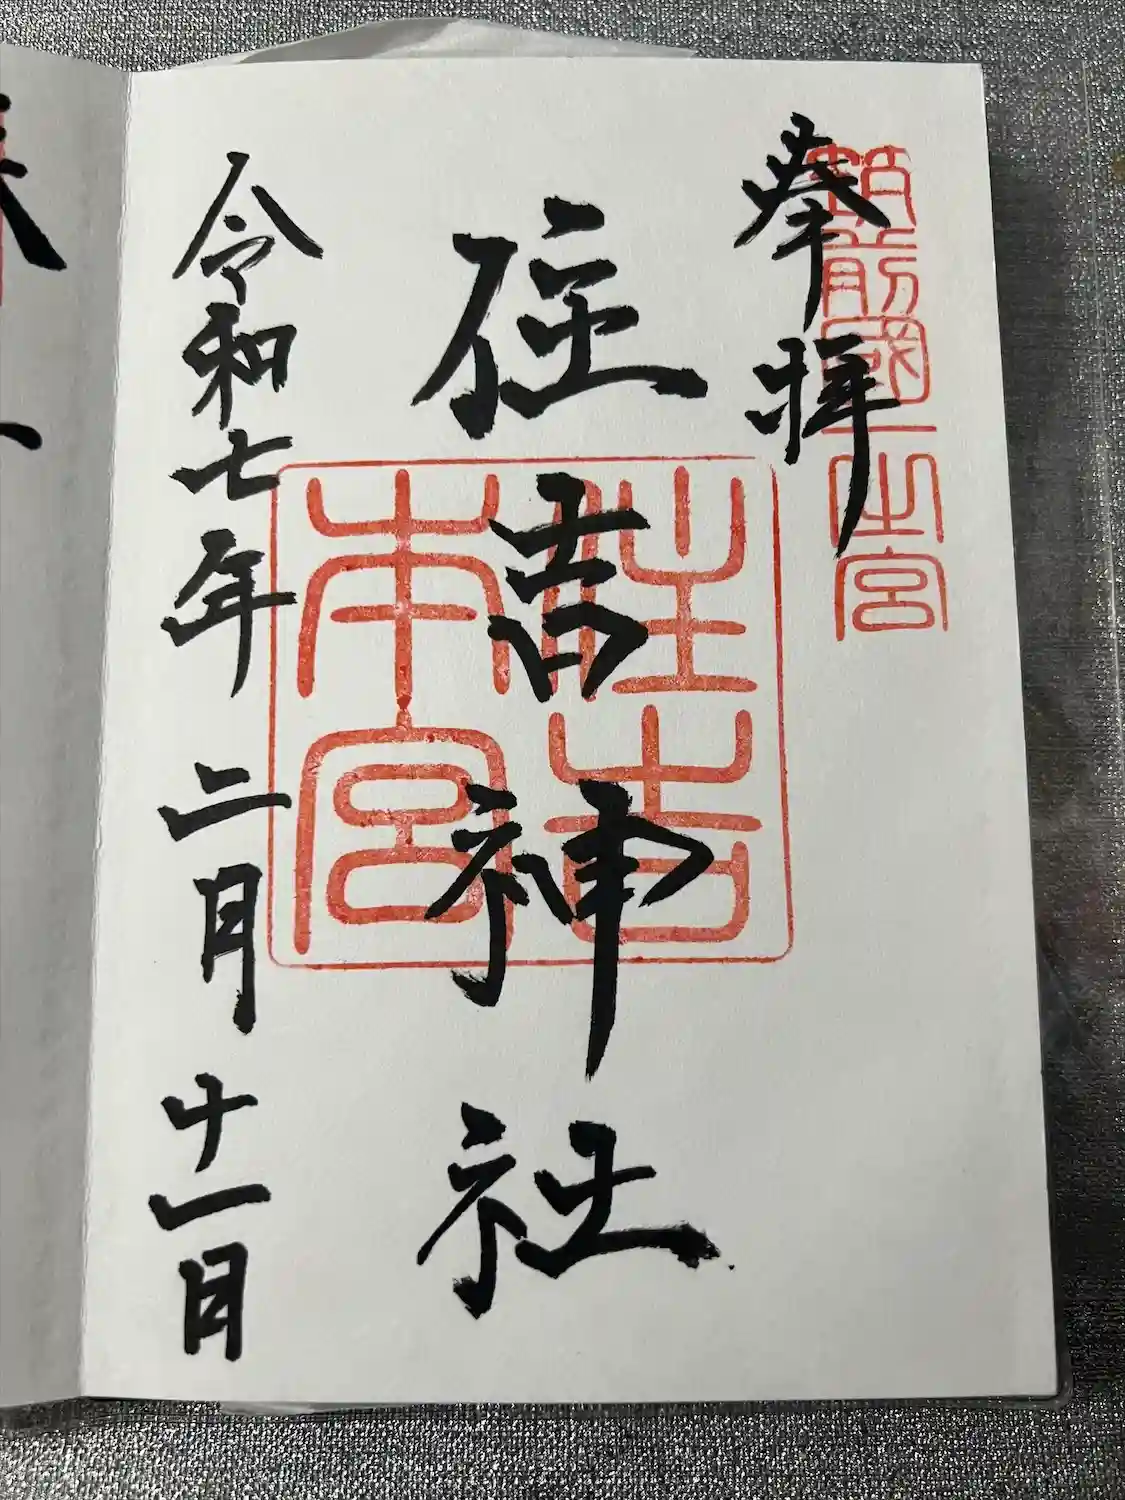 奉拝
筑前國一之宮
住吉神社
住吉
本宮
令和七年二月十一日